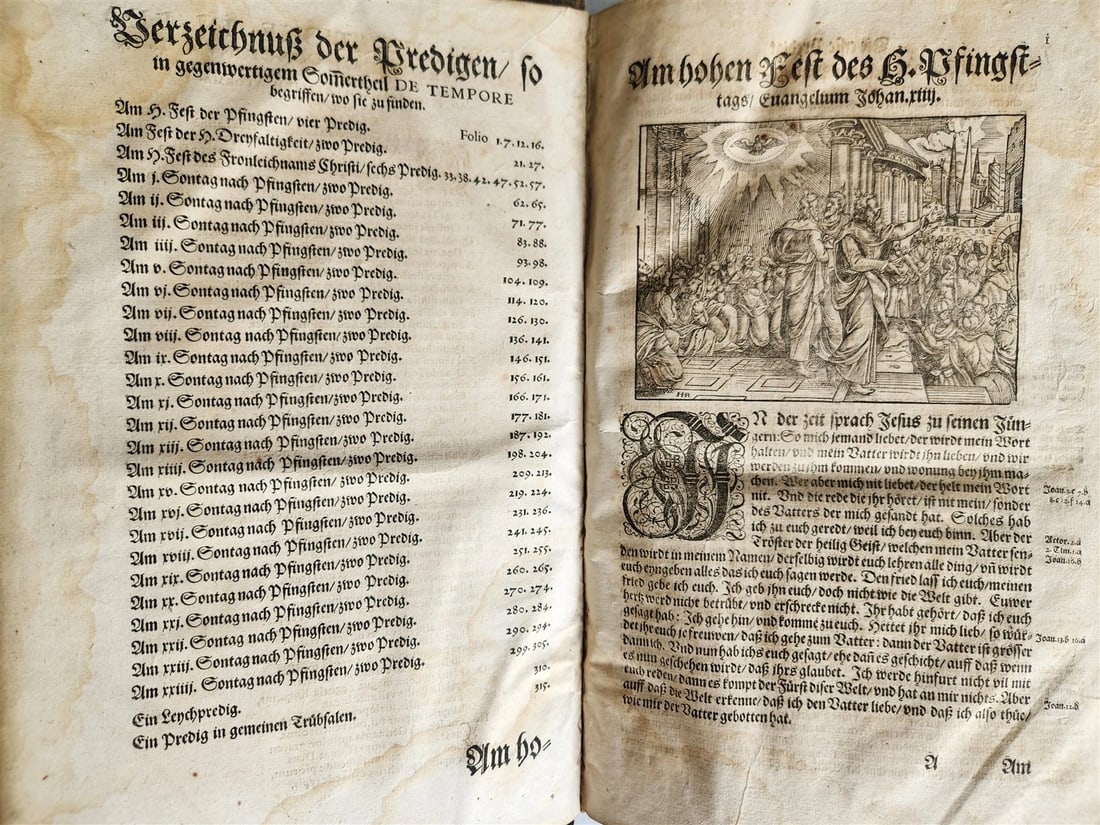 Verzeichnuß der Predigen/ so
in gegenwertigem Som̃ertheil DE TEMPORE
begriffen/ wo sie zu finden.
Am H. Fest der Pfingsten/ vier Predig. Folio 1.7.12.16.
Am Fest der H. Dreyfaltigkeit/ zwo Predig. 21.27.
Am H. Fest des Fronleichnams Christi/ sechs Predig. 33.38.42.47.52.57.
Am j. Sontag nach Pfingsten/ zwo Predig. 62.65.
Am ij. Sontag nach Pfingsten/ zwo Predig. 71.77.
Am iij. Sontag nach Pfingsten/ zwo Predig. 83.88.
Am iiij. Sontag nach Pfingsten/ zwo Predig. 93.98.
Am v. Sontag nach Pfingsten/ zwo Predig. 104.109.
Am vj. Sontag nach Pfingsten/ zwo Predig. 114.120.
Am vij. Sontag nach Pfingsten/ zwo Predig. 126.130.
Am viij. Sontag nach Pfingsten/ zwo Predig. 136.141.
Am ix. Sontag nach Pfingsten/ zwo Predig. 146.151.
Am x. Sontag nach Pfingsten/ zwo Predig. 156.161.
Am xj. Sontag nach Pfingsten/ zwo Predig. 166.171.
Am xij. Sontag nach Pfingsten/ zwo Predig. 177.181.
Am xiij. Sontag nach Pfingsten/ zwo Predig. 187.192.
Am xiiij. Sontag nach Pfingsten/ zwo Predig. 198.204.
Am xv. Sontag nach Pfingsten/ zwo Predig. 209.213.
Am xvj. Sontag nach Pfingsten/ zwo Predig. 219.224.
Am xvij. Sontag nach Pfingsten/ zwo Predig. 231.236.
Am xviij. Sontag nach Pfingsten/ zwo Predig. 241.245.
Am xix. Sontag nach Pfingsten/ zwo Predig. 251.255.
Am xx. Sontag nach Pfingsten/ zwo Predig. 260.265.
Am xxj. Sontag nach Pfingsten/ zwo Predig. 270.274.
Am xxij. Sontag nach Pfingsten/ zwo Predig. 280.284.
Am xxiij. Sontag nach Pfingsten/ zwo Predig. 290.294.
Am xxiiij. Sontag nach Pfingsten/ zwo Predig. 299.305.
Ein Leychpredig. 310.
Ein Predig in gemeinen Trübsalen. 315.
Am ho-
1
Am hohen Fest des H. Pfingst-
tags/ Euangelium Johan. xiiij.
HR
IN der zeit sprach Jesus zu seinen Jün-
gern: So mich jemand liebet/ der wirdt mein Wort
halten/ und mein Vatter wirdt ihn lieben/ und wir
werden zu ihm kommen/ und wonung bey ihm ma-
chen. Wer aber mich nit liebet/ der helt mein Wort
nit. Und die rede die ihr höret/ ist nit mein/ sonder
des Vatters der mich gesandt hat. Solches hab
ich zu euch geredt/ weil ich bey euch binn. Aber der
Tröster der heilig Geist/ welchen mein Vatter sen-
den wirdt in meinem Namen/ derselbig wirdt euch lehren alle ding/ uñ wirdt
euch eyngeben alles das ich euch sagen werde. Den fried lass ich euch/ meinen
fried gebe ich euch. Ich geb ihn euch/ doch nicht wie die Welt gibt. Euwer
hertz werd nicht betrübt/ und erschrecke nicht. Ihr habt gehört/ daß ich euch
gesagt hab: Ich gehe hin/ und komme zu euch. Hettet ihr mich lieb/ so wür-
det ihr euch je freuwen/ daß ich gehe zum Vatter: dann der Vatter ist grösser
dann ich. Und nun hab ichs euch gesagt/ ehe dañ es geschicht/ auff daß wenn
es nun geschehen wirdt/ daß ihrs glaubet. Ich werde hinfurt nicht vil mit
euch reden/ dann es kompt der Fürst diser Welt/ und hat an mir nichts. Aber
auff daß die Welt erkenne/ daß ich den Vatter liebe/ und daß ich also thüe/
wie mir der Vatter gebotten hat.
Actor. 2.a
2. Tim. 1.a
Joan. 16.b
Joan. 13.b 16.a
Joan. 12.d
A Am